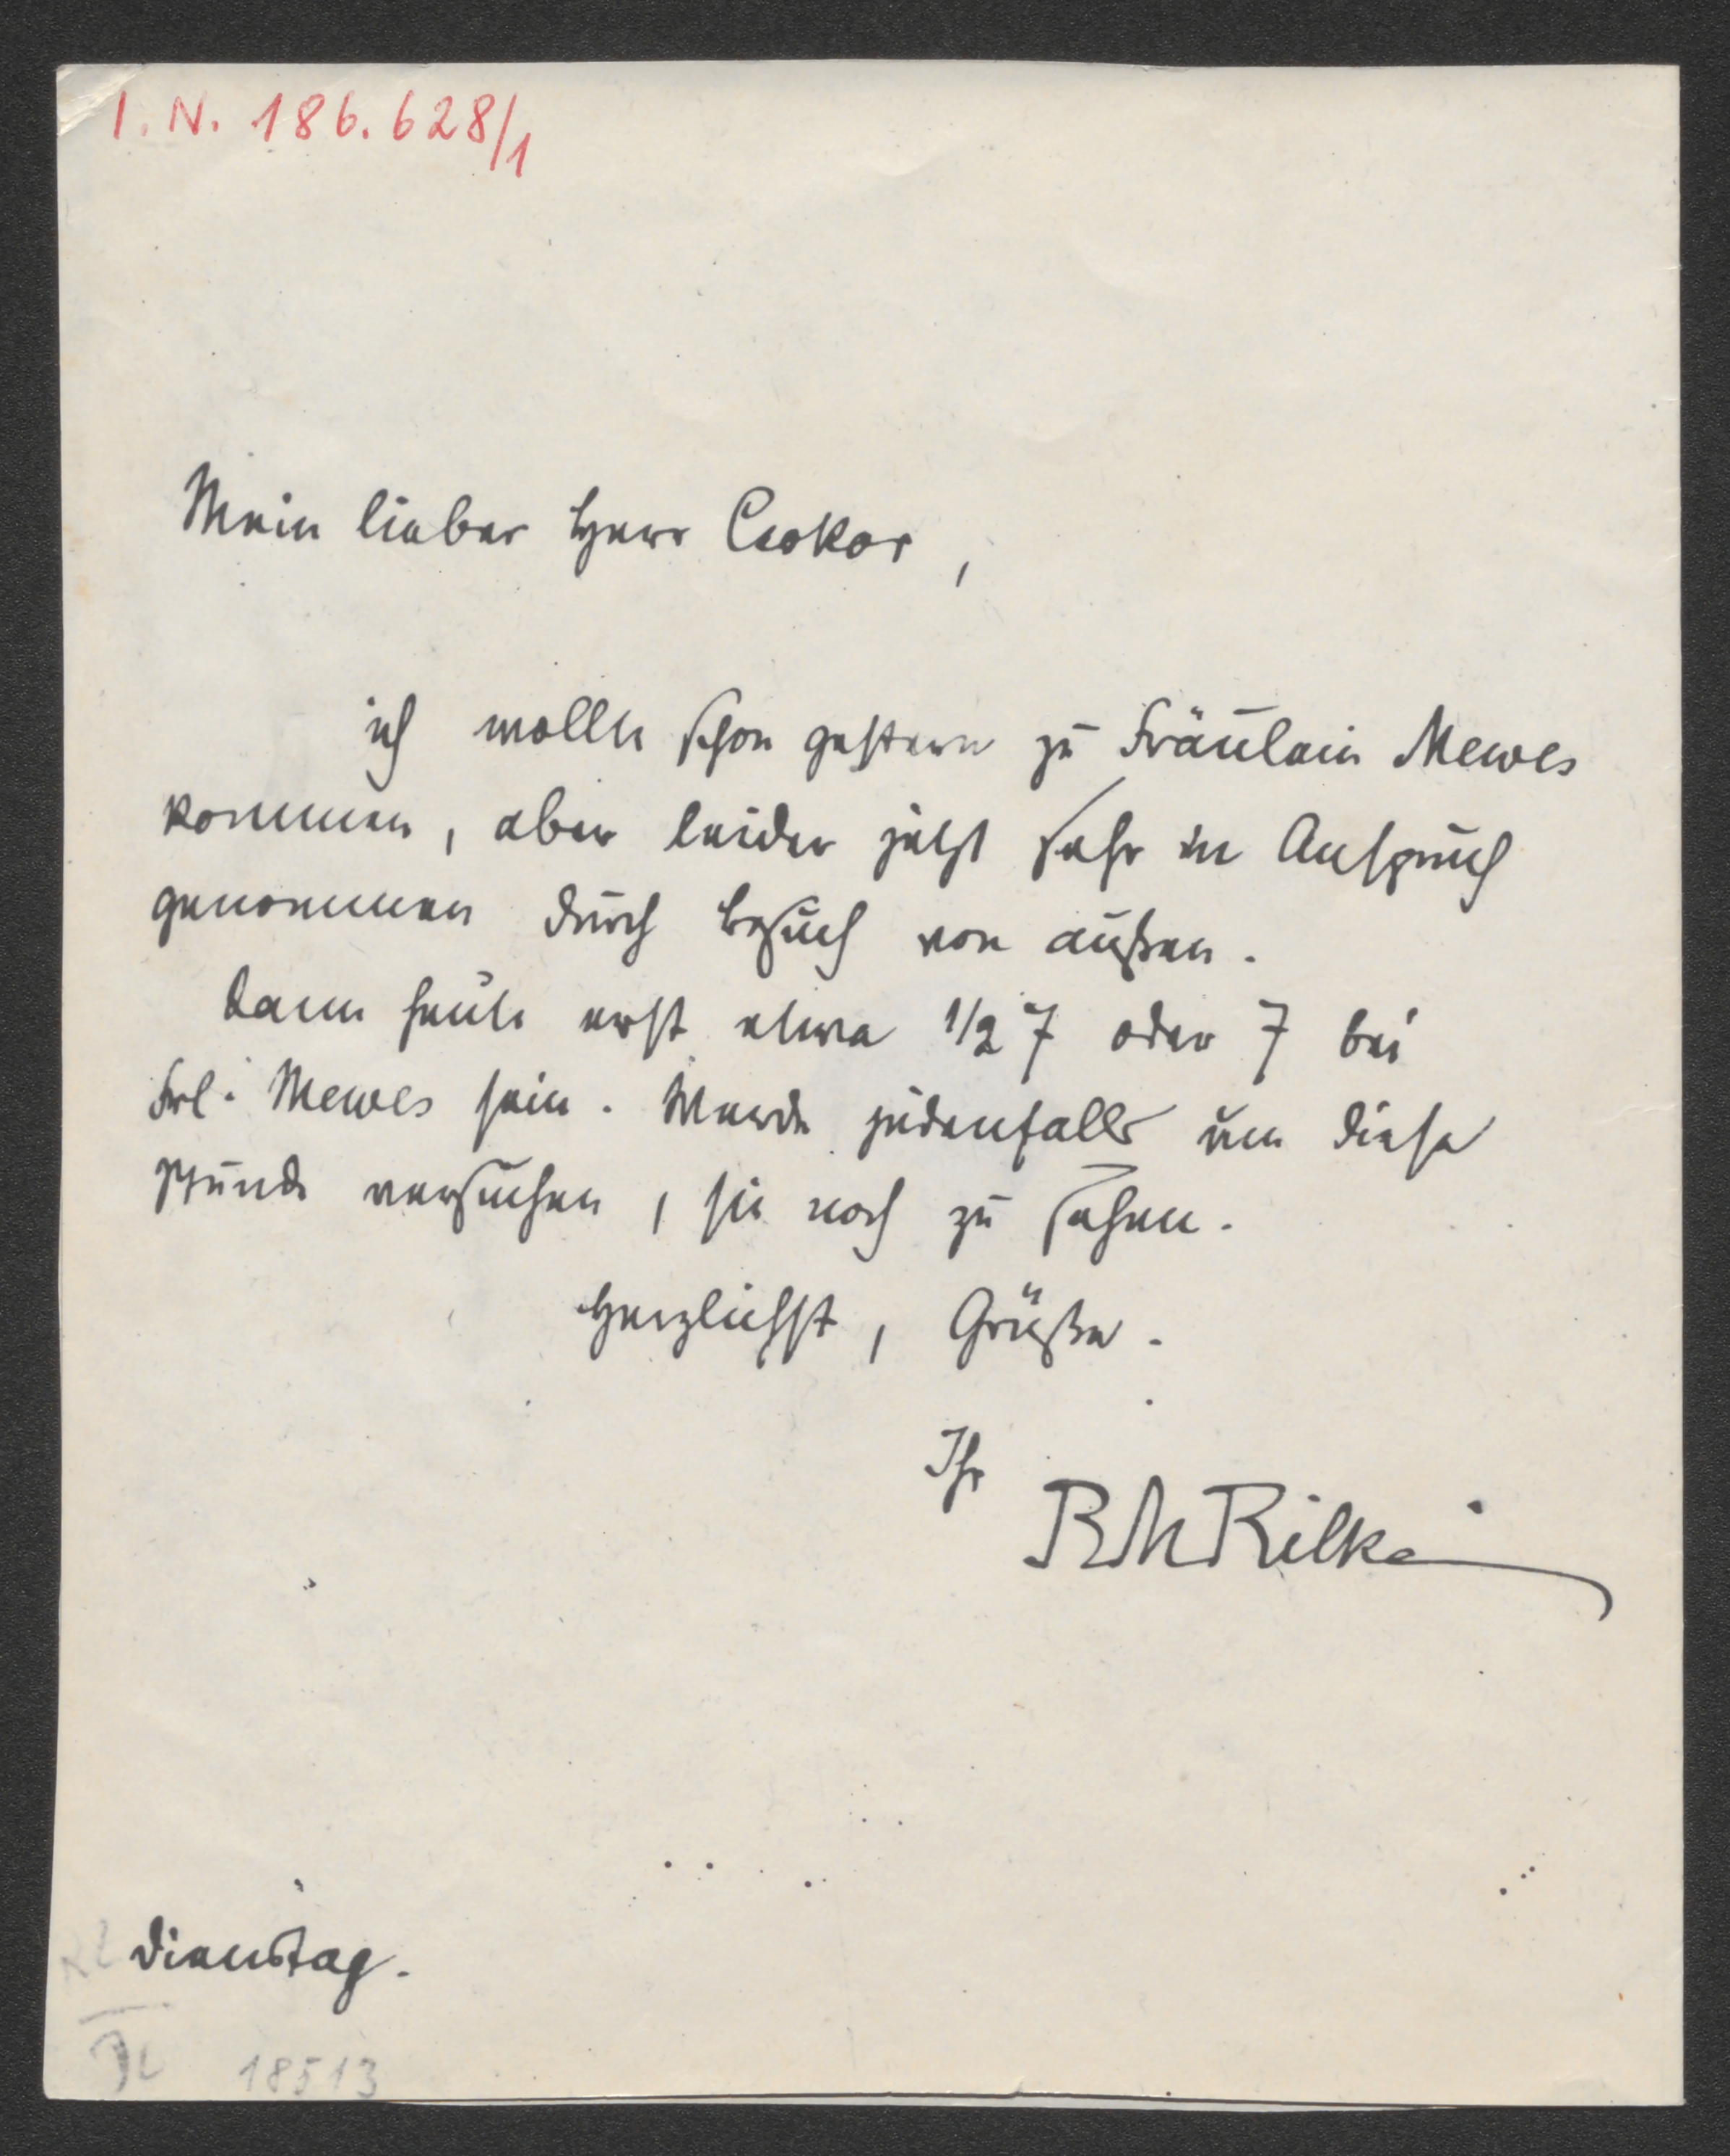 I. N. 186.628/1
Mein lieber Herr Csokor,
ich wollte schon gestern zu Fräulein Mewes
kommen, aber leider jetzt sehr in Anspruch
genommen durch Besuch von außen.
Kann heute erst etwa 1/2 7 oder 7 bei
Frl. Mewes sein. Werde jedenfalls um diese
Stunde versuchen, sie noch zu sehen.
Herzlichst, Grüße.
Ihr
RMRilke
Dienstag.
18513